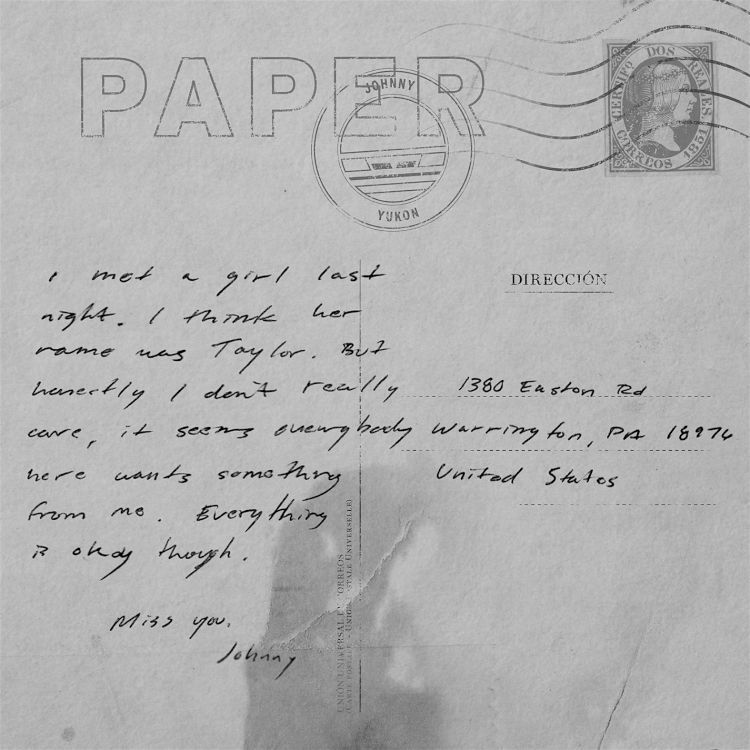 PAPER
JOHNNY
YUKON
CERTIFº DOS REALES
CORREOS 1851
DIRECCIÓN
I met a girl last
night. I think her
name was Taylor. But
honestly I don't really
care, it seems everybody
here wants something
from me. Everything
is okay though.
Miss you.
Johnny
1380 Easton Rd
Warrington, PA 18976
United States
UNIÓN UNIVERSAL DE CORREOS
(CARTE POSTALE - UNION POSTALE UNIVERSELLE)